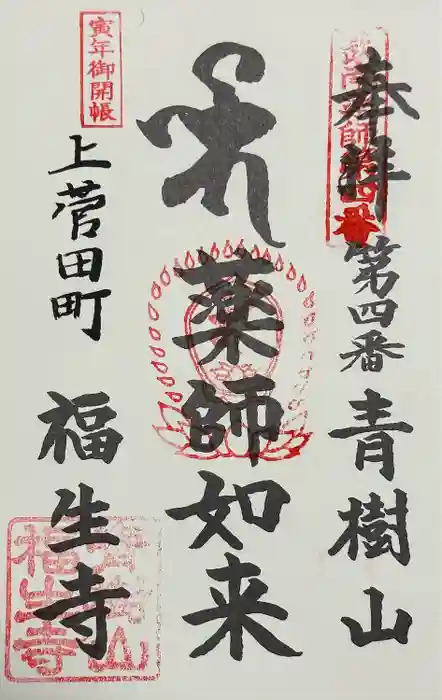 奉拝 第四番 青樹山
薬師如来
寅年御開帳
上菅田町 福生寺